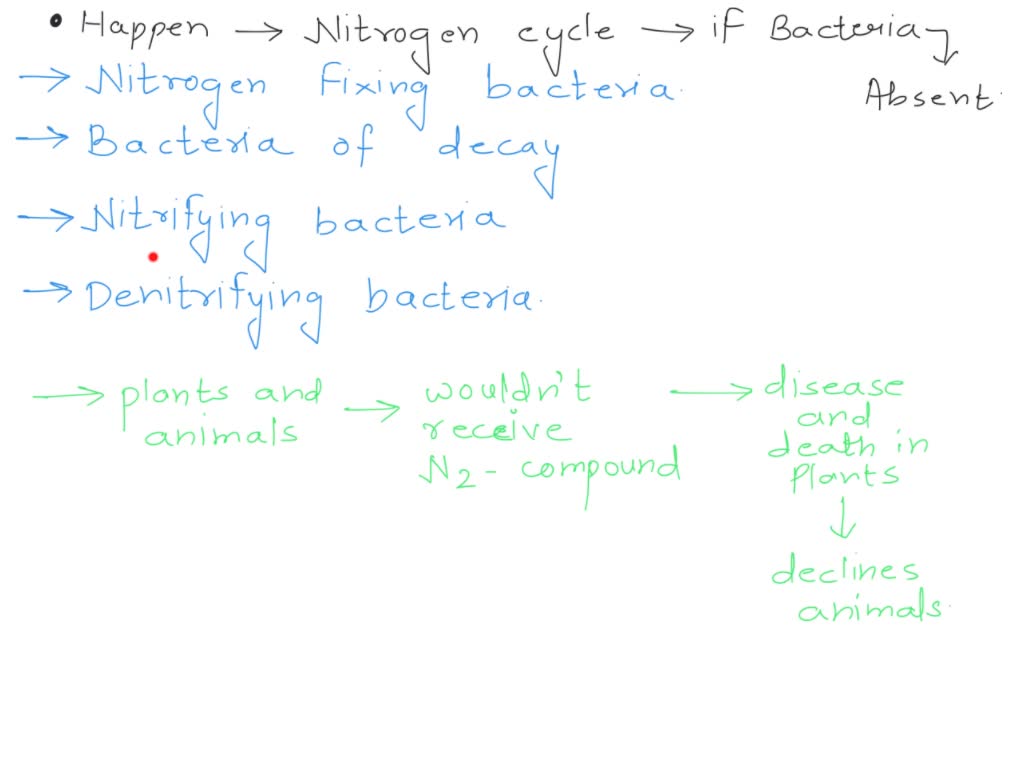 • Happen → Nitrogen cycle → if Bacteria
↓ Absent.
→ Nitrogen Fixing bacteria.
→ Bacteria of decay
→ Nitrifying bacteria
→ Denitrifying bacteria.
→ plants and
animals
→ wouldn't
receive
N2 - compound
→ disease
and
death in
plants
↓
declines
animals.